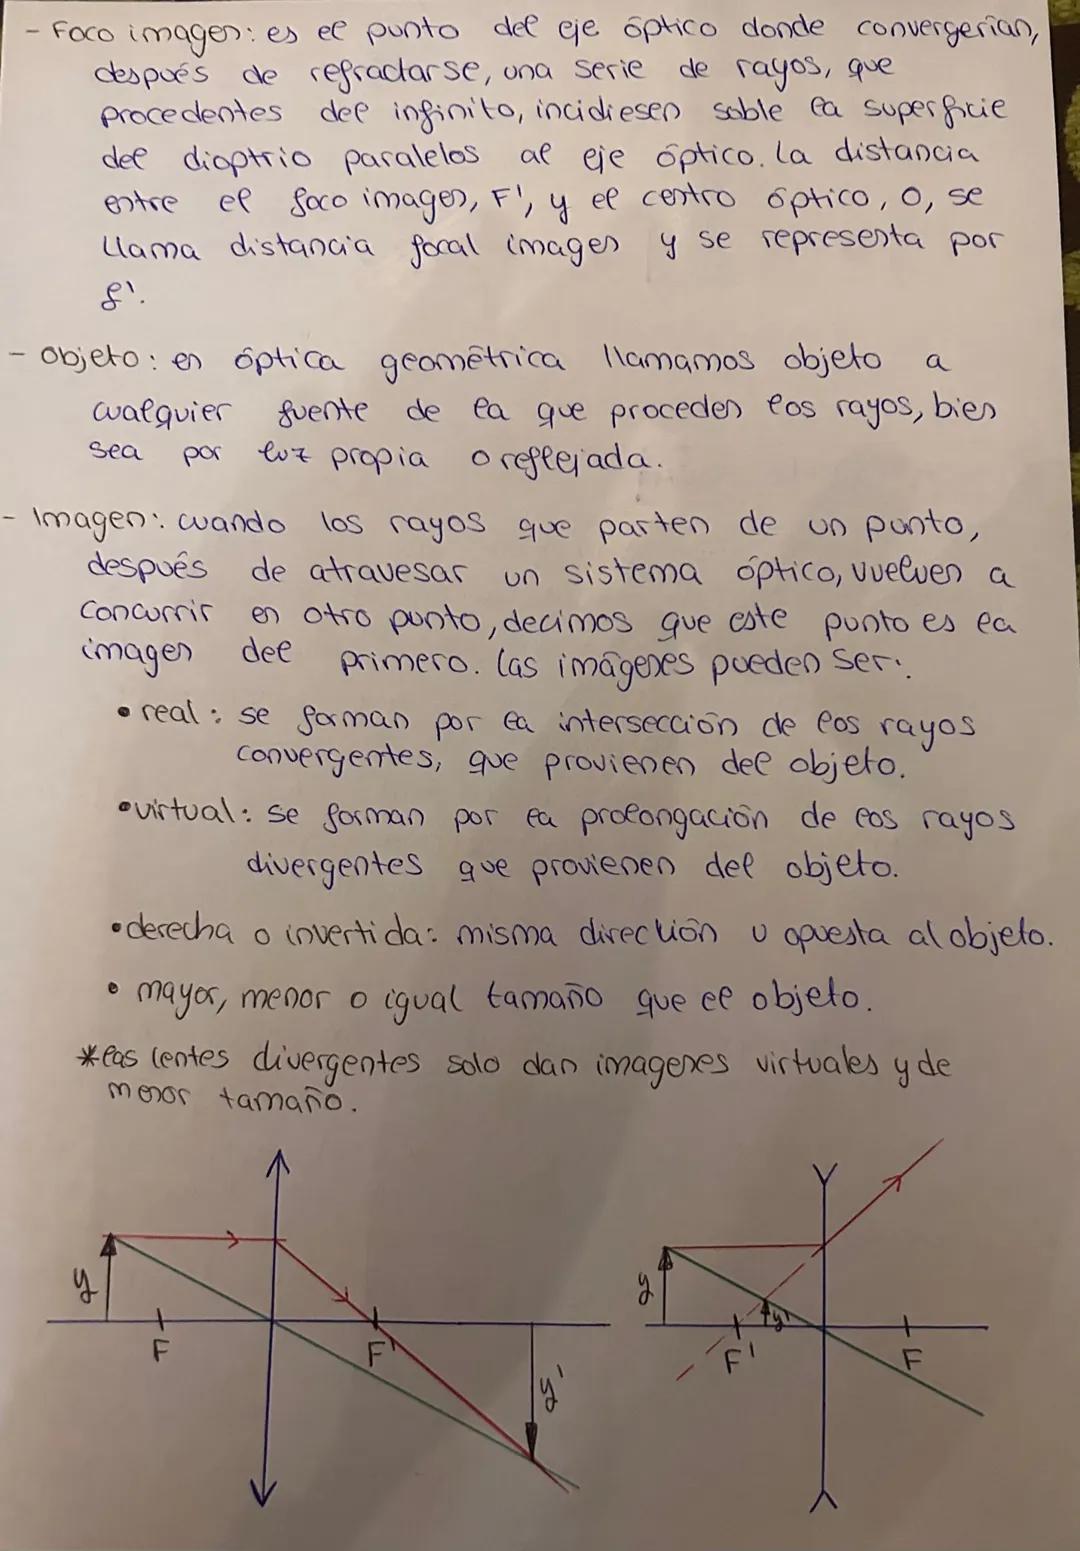 - Foco imagen: es el punto del eje óptico donde convergerían,
después de refractarse, una serie de rayos, que
procedentes del infinito, incidiesen soble la superficie
del dioptrio paralelos al eje óptico. La distancia
entre el foco imagen, F', y el centro óptico, O, se
llama distancia focal imagen y se representa por
f'.
- Objeto: en óptica geométrica llamamos objeto a
cualquier fuente de la que proceden los rayos, bien
sea por luz propia o reflejada.
- Imagen: cuando los rayos que parten de un punto,
después de atravesar un sistema óptico, vuelven a
concurrir en otro punto, decimos que este punto es la
imagen del primero. Las imágenes pueden ser:
• real: se forman por la intersección de los rayos
convergentes, que provienen del objeto.
• virtual: se forman por la prolongación de los rayos
divergentes que provienen del objeto.
• derecha o invertida: misma dirección u opuesta al objeto.
• mayor, menor o igual tamaño que el objeto.
*las lentes divergentes solo dan imagenes virtuales y de
menor tamaño.
y
F
F'
y'
y
F'
y'
F